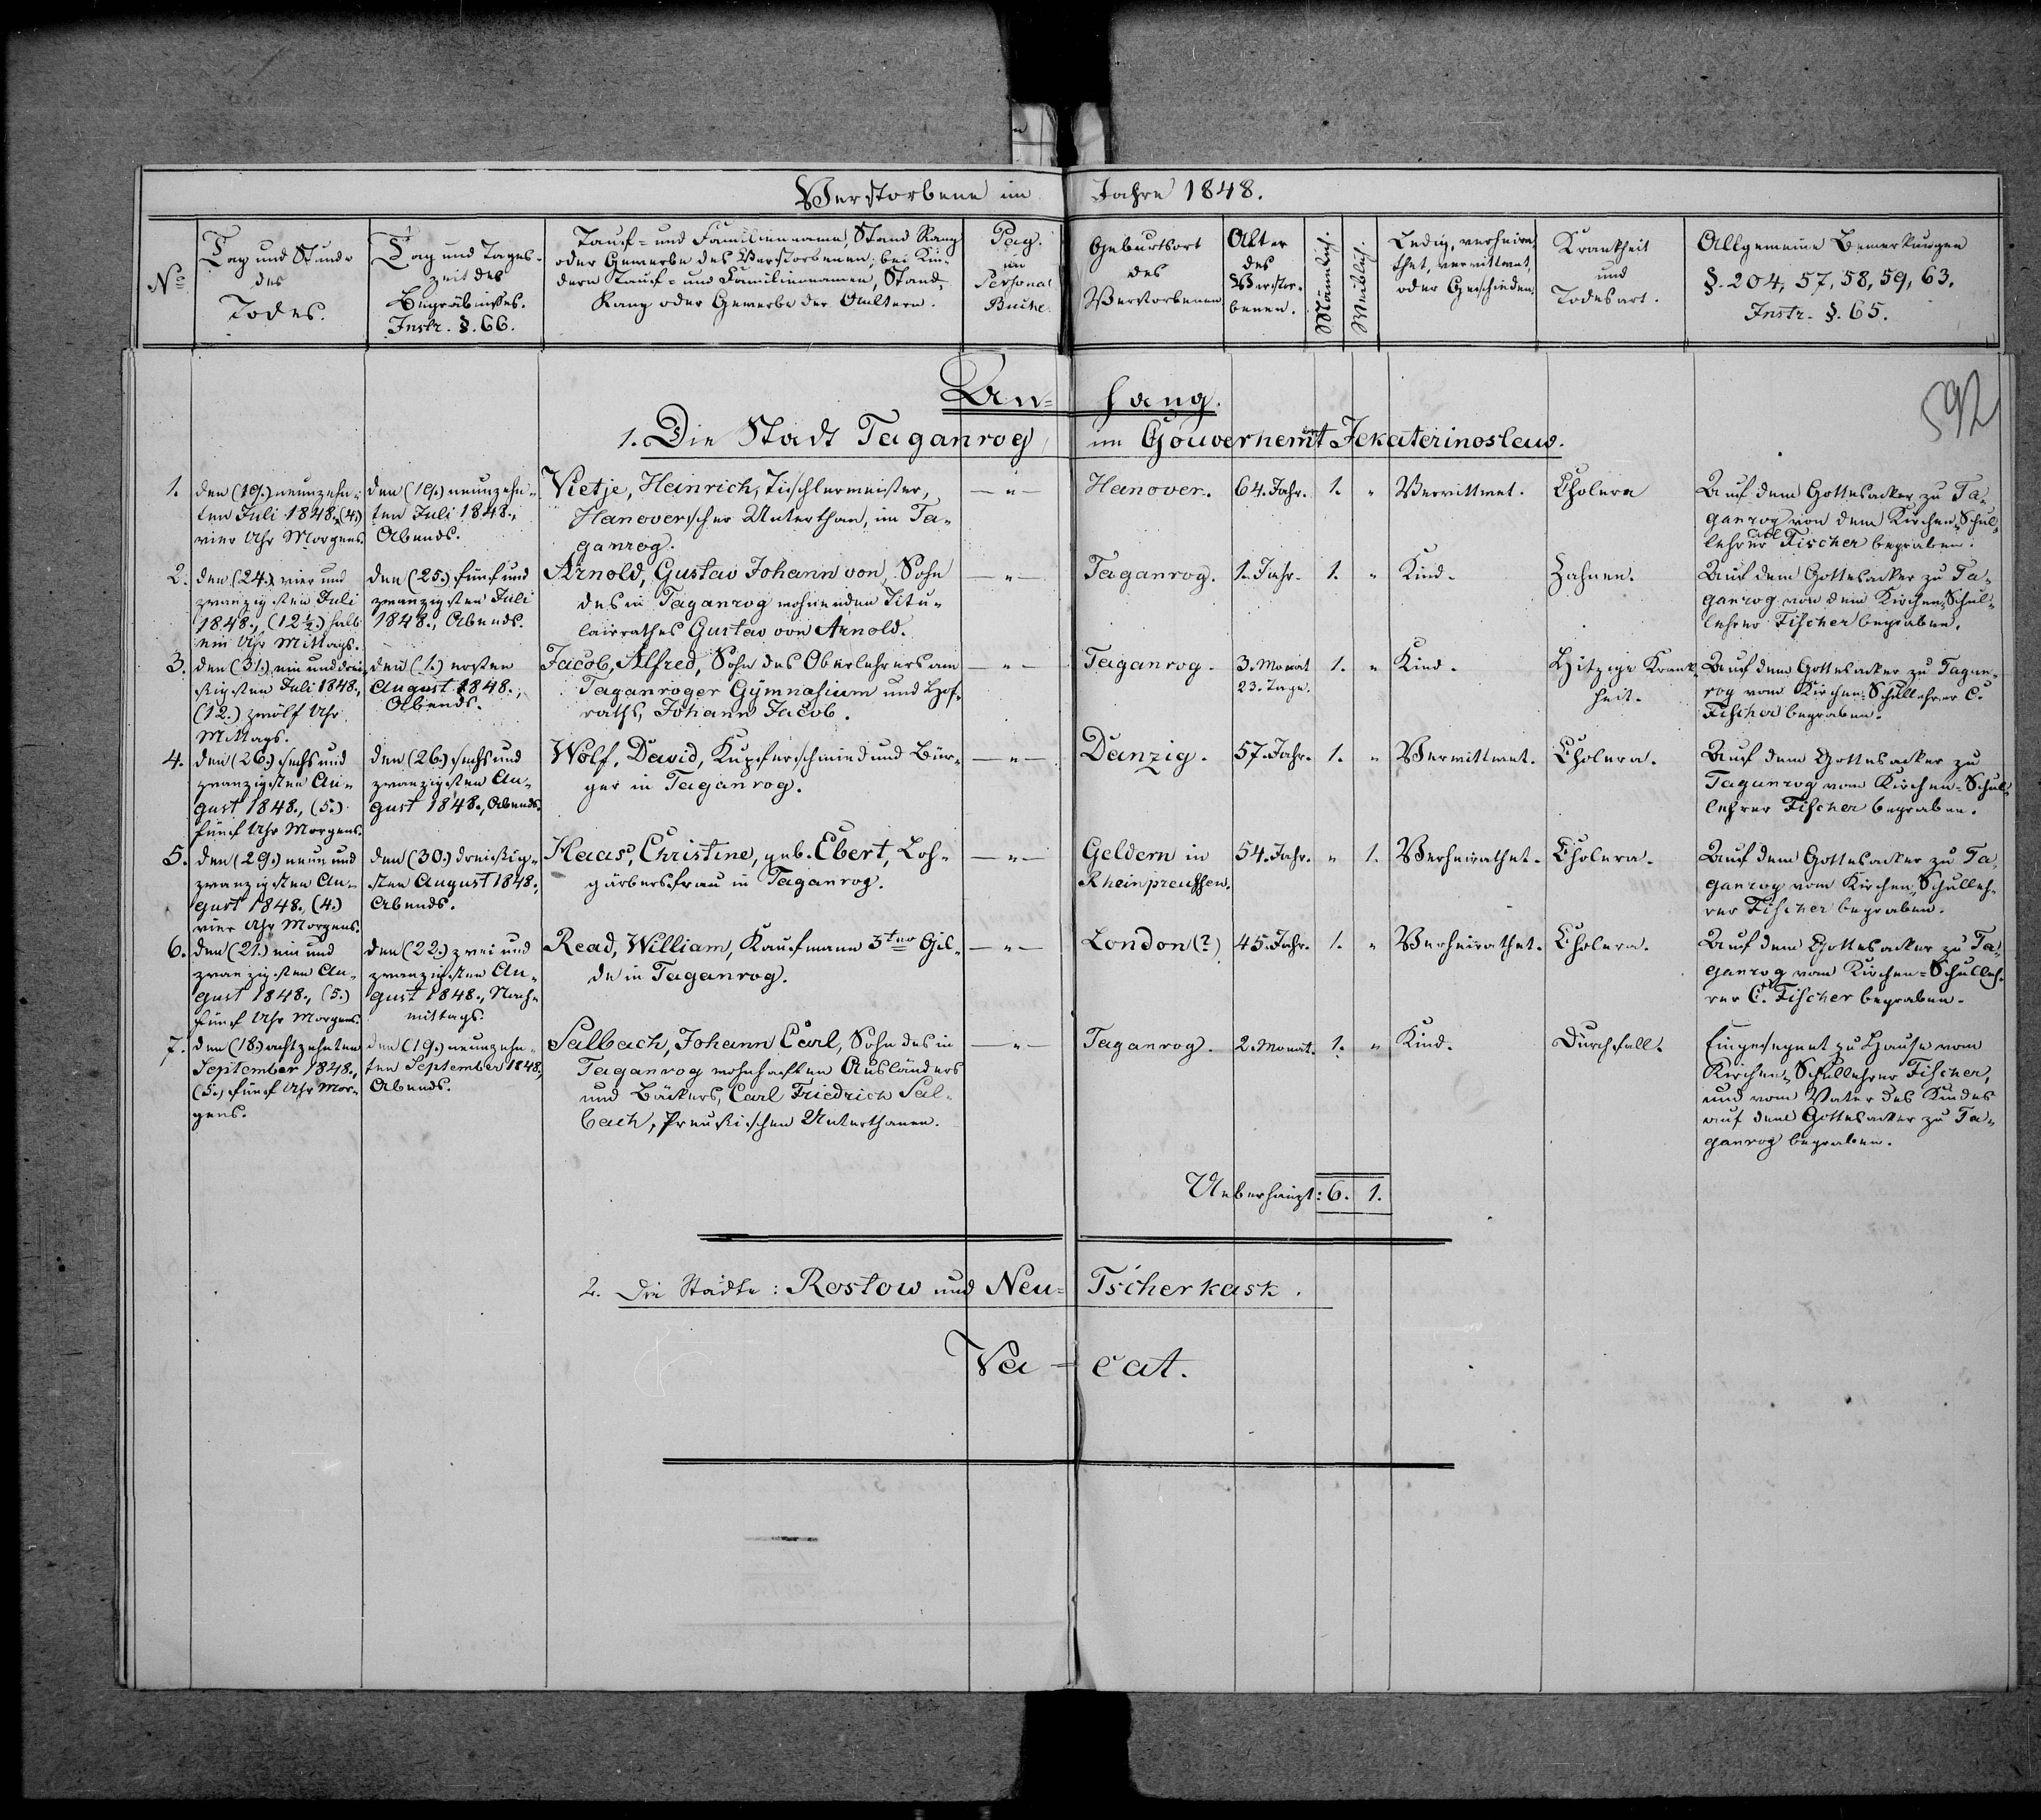 Verstorbene im Jahre 1848.
No
Tag und Stunde
des
Todes.
Tag und Tages-
zeit des
Begräbnisses.
Instr. §. 66.
Tauf- und Familienname, Stand Rang
oder Gewerbe des Verstorbenen; bei Kin-
dern Tauf- und Familiennamen, Stand,
Rang oder Gewerbe der Aeltern.
Pag.
im
Personal
Buche.
Geburtsort
des
Verstorbenen
Alter
des
Verstor-
benen.
Männlich.
Weiblich.
Ledig, verheira-
thet, verwittwet,
oder Geschieden.
Krankheit
und
Todesart.
Allgemeine Bemerkungen
§. 204, 57, 58, 59, 63.
Instr. §. 65.
592
An- hang.
1. Die Stadt Taganrog, im Gouvernemt Jekaterinoslaw.
1.
den (19.) neunzehn-
ten Juli 1848., (4.)
vier Uhr Morgens.
den (19.) neunzehn-
ten Juli 1848.,
Abends.
Vietje, Heinrich, Tischlermeister,
Hanoverscher Unterthan, im Ta-
ganrog.
— " —
Hanover.
64. Jahr.
1.
"
Verwittwet.
Cholera
Auf dem Gottesacker zu Ta-
ganrog von dem Kirchen-Schul-
lehrer Carl Fischer begraben.
2.
den (24.) vier und
zwanzigsten Juli
1848., (12½.) halb
ein Uhr Mittags.
den (25.) fünf und
zwanzigsten Juli
1848., Abends.
Arnold, Gustav Johann von, Sohn
des in Taganrog wohnenden Titu-
lairrathes Gustav von Arnold.
— "
Taganrog.
1. Jahr.
1.
"
Kind.
Zahnen.
Auf dem Gottesacker zu Ta-
ganrog von dem Kirchen-Schul-
lehrer Fischer begraben.
3.
den (31.) ein und drei-
ßigsten Juli 1848.,
(12.) zwölf Uhr
Mittags.
den (1.) ersten
August 1848.,
Abends.
Jacob, Alfred, Sohn des Oberlehrers am
Taganroger Gymnasium und Hof-
raths, Johann Jacob.
— " —
Taganrog.
3. Monat
23. Tage.
1.
"
Kind.
Hitzige Krank-
heit.
Auf dem Gottesacker zu Tagan-
rog vom Kirchen-Schullehrer C.
Fischer begraben.
4.
den (26.) sechs und
zwanzigsten Au-
gust 1848., (5.)
fünf Uhr Morgens.
den (26.) sechs und
zwanzigsten Au-
gust 1848., Abends.
Wolf, David, Kupferschmied und Bür-
ger in Taganrog.
— " —
Danzig.
57. Jahr.
1.
"
Verwittwet.
Cholera.
Auf dem Gottesacker zu
Taganrog vom Kirchen-Schul-
lehrer Fischer begraben.
5.
den (29.) neun und
zwanzigsten Au-
gust 1848., (4.)
vier Uhr Morgens.
den (30.) dreißig-
sten August 1848.,
Abends.
Haas, Christine, geb. Ebert, Loh-
gärbersfrau in Taganrog.
— " —
Geldern in
Rheinpreussen.
54. Jahr.
"
1.
Verheirathet.
Cholera.
Auf dem Gottesacker zu Ta-
ganrog vom Kirchen-Schulleh-
rer Fischer begraben.
6.
den (21.) ein und
zwanzigsten Au-
gust 1848., (5.)
fünf Uhr Morgens.
den (22.) zwei und
zwanzigsten Au-
gust 1848., Nach-
mittags.
Read, William, Kaufmann 3ter Gil-
de in Taganrog.
— " —
London (?)
45. Jahr.
1.
"
Verheirathet.
Cholera.
Auf dem Gottesacker zu Ta-
ganrog vom Kirchen-Schulleh-
rer C. Fischer begraben.
7.
den (18.) achtzehnten
September 1848.,
(5.) fünf Uhr Mor-
gens.
den (19.) neunzehn-
ten September 1848,
Abends.
Salbach, Johann Carl, Sohn des in
Taganrog wohnhaften Ausländers
und Bäckers, Carl Friedrich Sal-
bach, Preußischen Unterthanen.
— " —
Taganrog.
2. Monat.
1.
"
Kind.
Durchfall.
Eingesegnet zu Hause vom
Kirchen-Schullehrer Fischer,
und vom Vater des Kindes
auf dem Gottesacker zu Ta-
ganrog begraben.
Ueberhaupt: 6. 1.
2. Die Städte: Rostow und Neu- Tscherkask.
Va- cat.